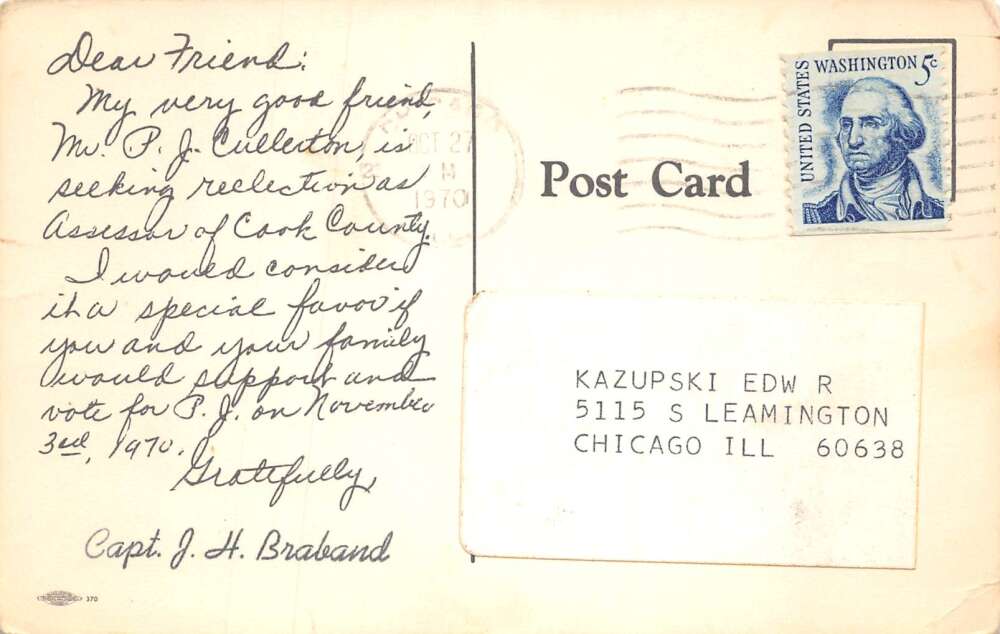 Dear Friend:
My very good friend,
Mr. P. J. Cullerton, is
seeking reelection as
Assessor of Cook County.
I would consider
it a special favor if
you and your family
would support and
vote for P. J. on November
3rd, 1970.
Gratefully,
Capt. J. H. Braband
370
OCT 27
1970
Post Card
UNITED STATES
WASHINGTON 5c
KAZUPSKI EDW R
5115 S LEAMINGTON
CHICAGO ILL 60638